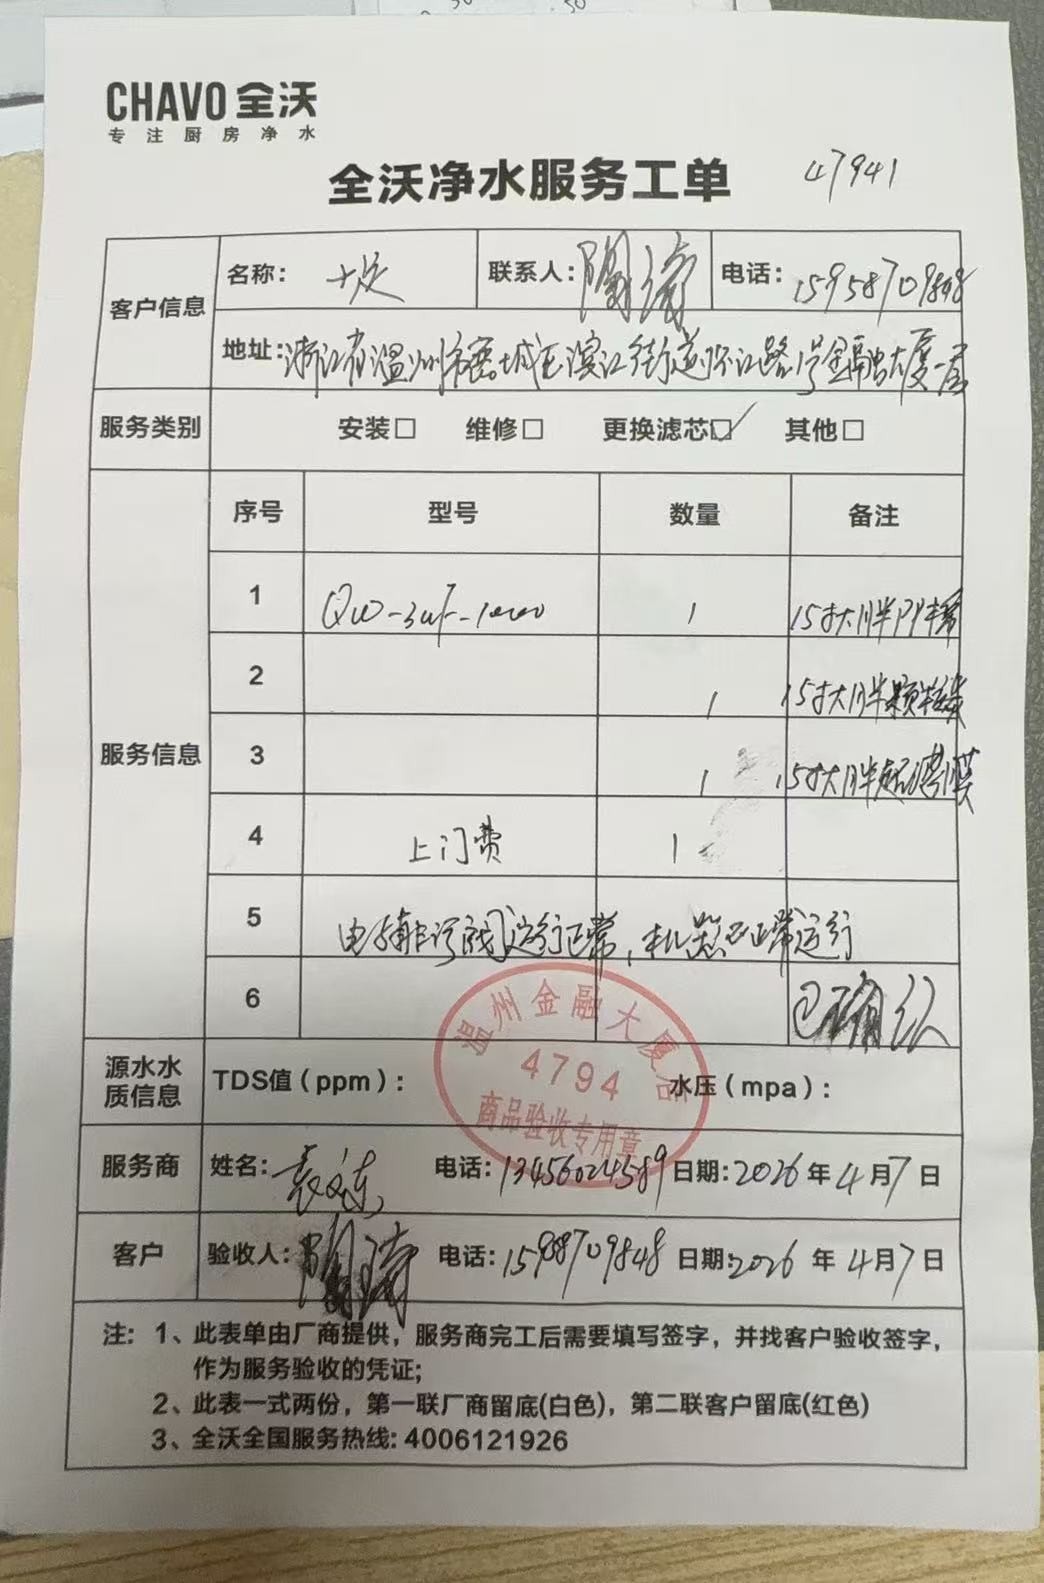 CHAVO 全沃
专注厨房净水
全沃净水服务工单 47941
客户信息
名称： 联系人： 电话：
地址：浙江省温州市鹿城区滨江街道 江路1号金融大厦一层
服务类别 安装□ 维修□ 更换滤芯☑ 其他□
服务信息
序号 型号 数量 备注
1 QW-3UF-1000 1 15寸大胖PP棉
2 1 15寸大胖颗粒炭
3 1 15寸大胖超滤膜
4 上门费 1
5 阀运行正常，机器已正常运行
6 已确认
温州金融大厦店
4794
商品验收专用章
源水水质信息 TDS值（ppm）： 水压（mpa）：
服务商 姓名： 电话：13456024589 日期：2026年4月7日
客户 验收人： 电话： 日期：2026年4月7日
注：1、此表单由厂商提供，服务商完工后需要填写签字，并找客户验收签字，
作为服务验收的凭证；
2、此表一式两份，第一联厂商留底(白色)，第二联客户留底(红色)
3、全沃全国服务热线：4006121926